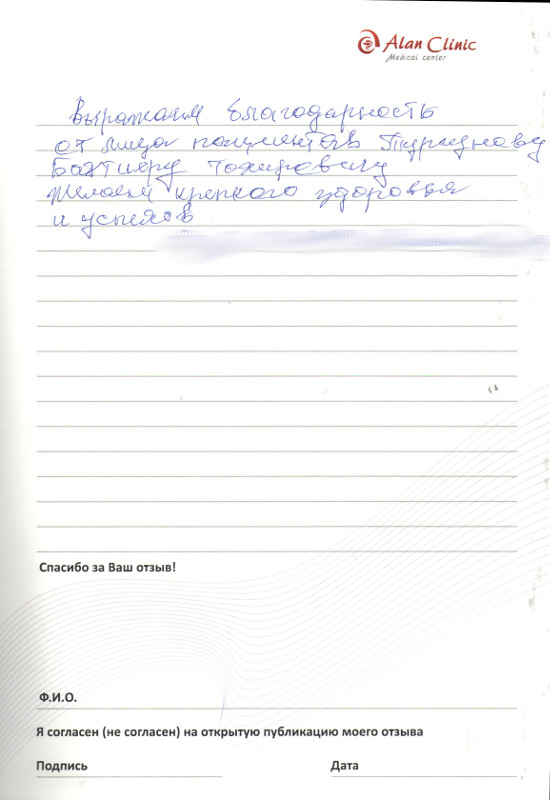 Alan Clinic
Medical center
Выражаем благодарность
от лица пациентов Турсунову
Бахтиеру Тохировичу
Желаем крепкого здоровья
и успехов
Спасибо за Ваш отзыв!
Ф.И.О.
Я согласен (не согласен) на открытую публикацию моего отзыва
Подпись Дата